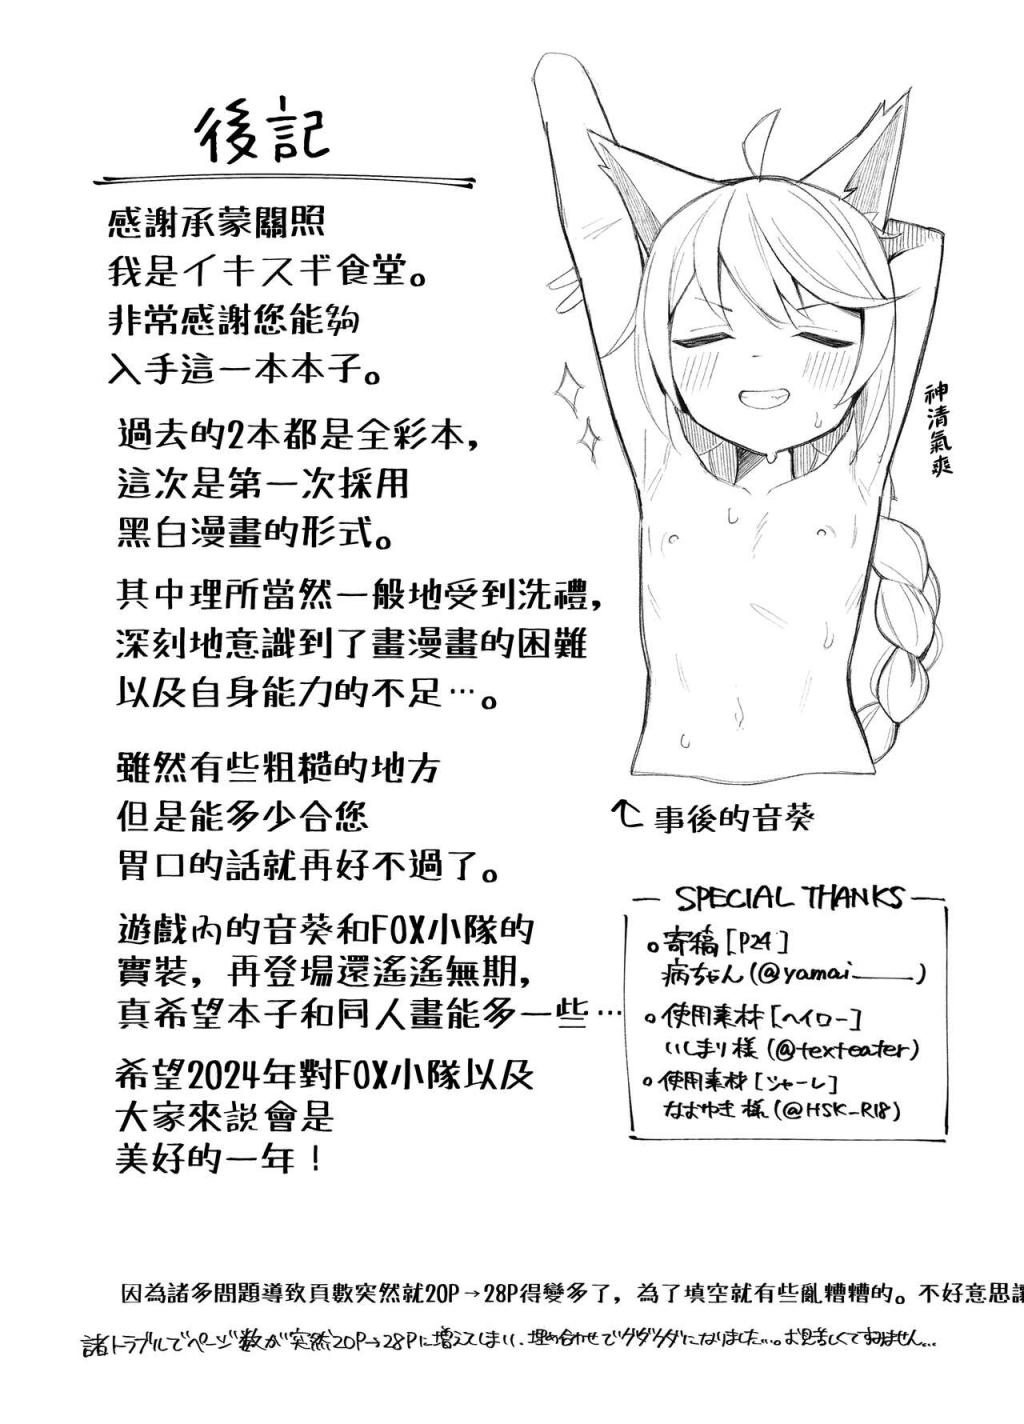 後記
感謝承蒙關照
我是イキスギ食堂。
非常感謝您能夠
入手這一本本子。
過去的2本都是全彩本，
這次是第一次採用
黑白漫畫的形式。
其中理所當然一般地受到洗禮，
深刻地意識到了畫漫畫的困難
以及自身能力的不足…。
雖然有些粗糙的地方
但是能多少合您
胃口的話就再好不過了。
遊戲內的音葵和FOX小隊的
實裝，再登場還遙遙無期，
真希望本子和同人畫能多一些…
希望2024年對FOX小隊以及
大家來説會是
美好的一年！
神清氣爽
事後的音葵
SPECIAL THANKS
。寄稿[P24]
病ちゃん(@yamai____)
。使用素材[ヘイロー]
いしまり様(@texteater)
。使用素材[シャーレ]
なおゆき様(@HSK_R18)
因為諸多問題導致頁數突然就20P→28P得變多了，為了填空就有些亂糟糟的。不好意思讓
諸トラブルでページ数が突然20P→28Pに増えてしまい、埋め合わせでグダグダになりました…。お見苦しくてすみません…